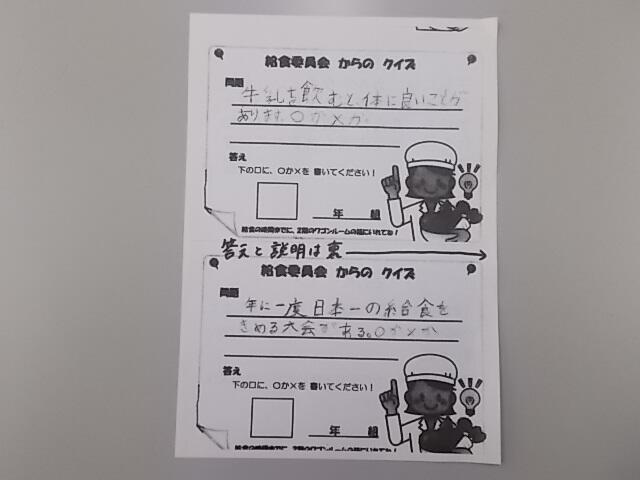 給食委員会 からの クイズ
問題
牛乳を飲むと、体に良いことが
あります。○か×か
答え
下の口に、○か×を 書いてください!
年 組
給食の時間までに、2階のワゴンルームの箱にいれてね!
答えと説明は裏
給食委員会 からの クイズ
問題
年に一度日本一の給食を
きめる大会がある。○か×か
答え
下の口に、○か×を 書いてください!
年 組
給食の時間までに、2階のワゴンルームの箱にいれてね!